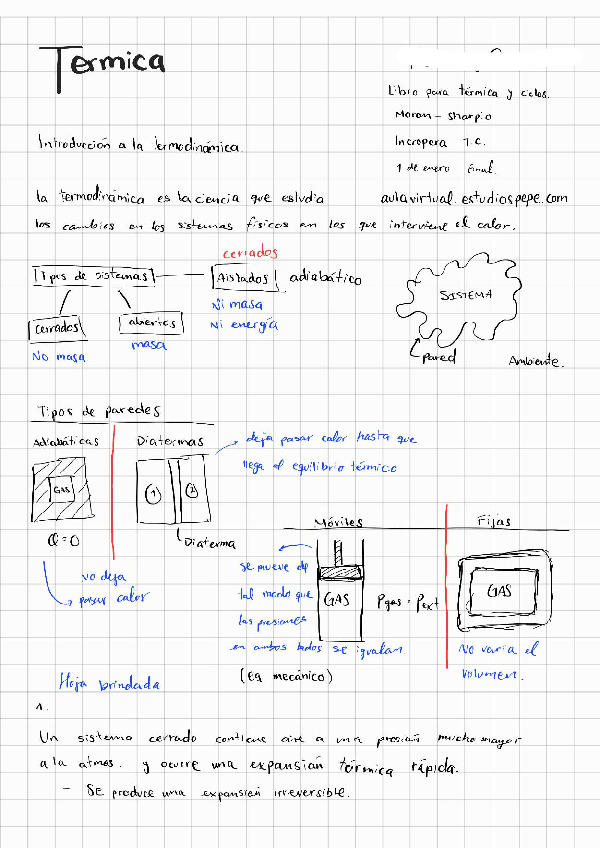 Termica
Libro para térmica y ciclos.
Moran - sharpio
Incropera T.C.
1 de enero final.
Introducción a la termodinámica.
la termodinámica es la ciencia que estudia
aulavirtual.estudiospepe.com
los cambios en los sistemas físicos en los que interviene el calor.
cerrados
Tipos de sistemas
Aislados adiabático
Ni masa
Ni energía
cerrados
abiertos
No masa
masa
SISTEMA
Pared
Ambiente.
Tipos de paredes
Adiabáticas
Diatermas
deja pasar calor hasta que
llega al equilibrio térmico
GAS
1
2
Q=0
Diaterma
no deja
pasar calor
Móviles
Fijas
se mueve de
tal modo que
las presiones
en ambos lados se igualan.
(eq mecánico)
GAS
Pgas = Pext
GAS
No varia el
volumen.
Hoja brindada
1.
Un sistema cerrado contiene aire a una presión mucho mayor
a la atmos. y ocurre una expansión térmica rápida.
- Se produce una expansión irreversible.